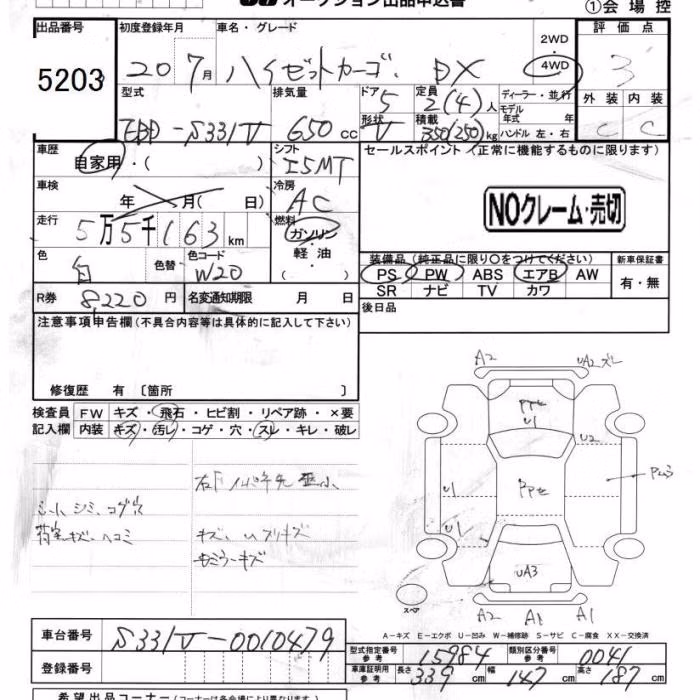 オークション出品申込書
①会場控
出品番号 初度登録年月 車名・グレード 2WD ・ 4WD 評価点
5203 20 7月 ハイゼットカーゴ DX 3
型式 排気量 ドア 5 定員 2(4)人 ディーラー・並行 外装 内装
EBD-S331V 650cc 形状 V 積載 350(250)kg モデル年式 年 C C
ハンドル 左・右
車歴 自家用・( ) シフト I5MT セールスポイント(正常に機能するものに限ります)
車検 年 月( 日) 冷房 AC NOクレーム・売切
走行 5万5千163km 燃料 ガソリン・軽油・( )
色 白 色替 色コード W20 装備品(純正品に限り○をつけてください) 新車保証書
PS PW ABS エアB AW 有・無
SR ナビ TV カワ
R券 8,220円 名変通知期限 月 日 後日品
注意事項申告欄(不具合内容等は具体的に記入して下さい)
修復歴 有〔箇所 〕
検査員 FW キズ・飛石・ヒビ割・リペア跡・×要
記入欄 内装 キズ・汚レ・コゲ・穴・スレ・キレ・破レ
シート シミ、コゲ穴
荷室キズ、ヘコミ
キズ、
A2 UA2 ズレ
U1
U2
U1
U
UA3
スペア
A2 A1 A1
A-キズ E-エクボ U-凹み W-補修跡 S-サビ C-腐食 XX-交換済
車台番号 S331V-0010479 型式指定番号 参考 15984 類別区分番号 参考 0041
登録番号 車庫証明用 参考 長さ 339cm 幅 147cm 高さ 187cm
希望出品コーナー(コーナーは各会場により異なります)